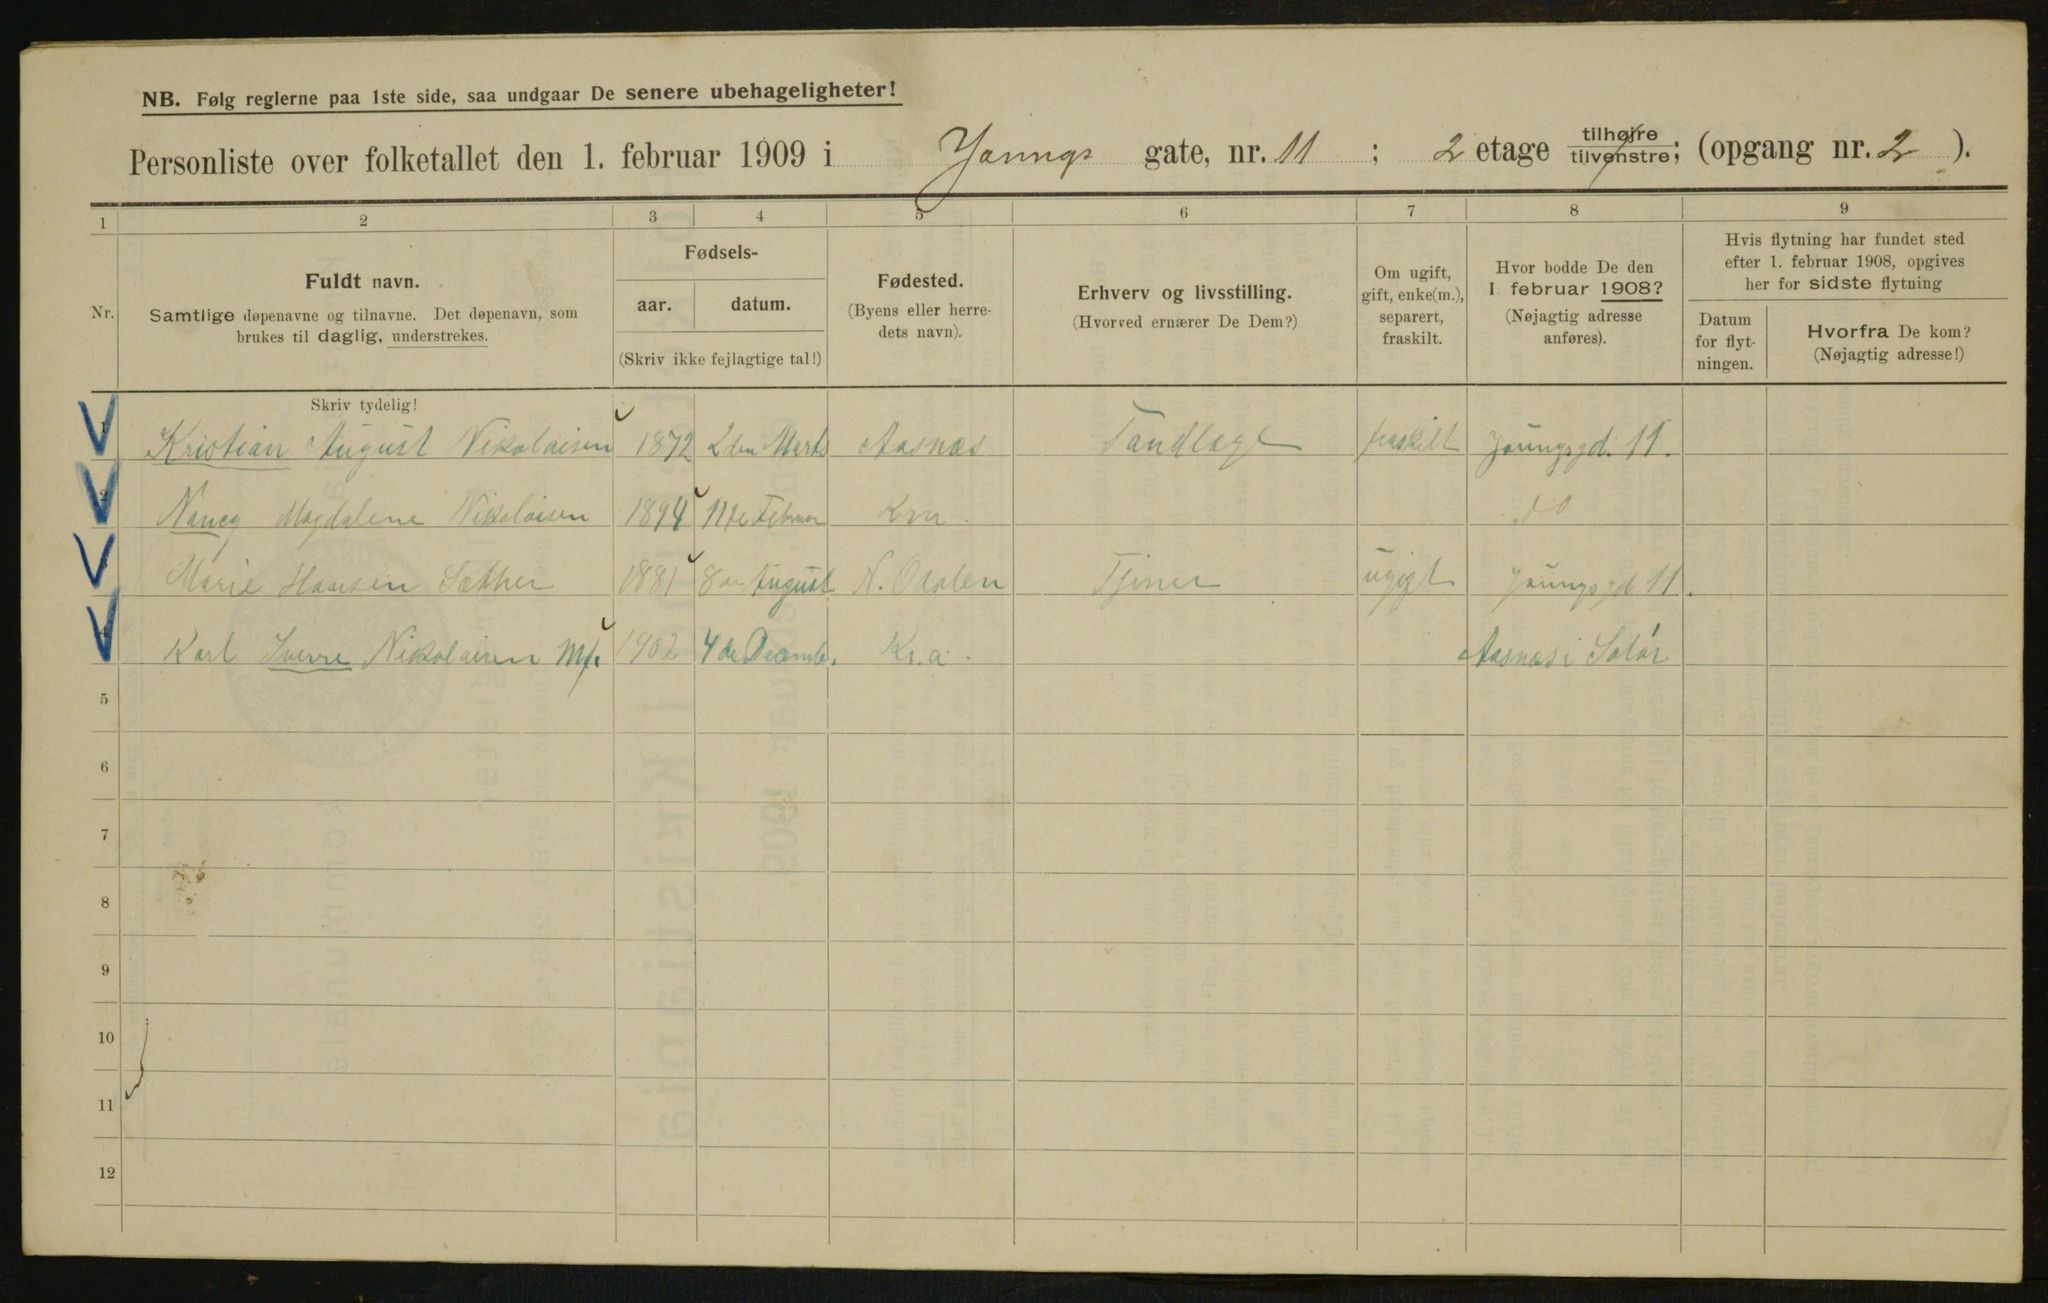 NB. Følg reglerne paa 1ste side, saa undgaar De senere ubehageligheter!
Personliste over folketallet den 1. februar 1909 i Youngs gate, nr. 11 ; 2 etage tilhøire tilvenstre; (opgang nr. 2 ).
1 2 3 4 5 6 7 8 9
Nr.
Fuldt navn.
Samtlige døpenavne og tilnavne. Det døpenavn, som
brukes til daglig, understrekes.
Fødsels-
aar. datum.
(Skriv ikke fejlagtige tal!)
Fødested.
(Byens eller herre-
dets navn).
Erhverv og livsstilling.
(Hvorved ernærer De Dem?)
Om ugift,
gift, enke(m.),
separert,
fraskilt.
Hvor bodde De den
1. februar 1908?
(Nøjagtig adresse
anføres).
Hvis flytning har fundet sted
efter 1. februar 1908, opgives
her for sidste flytning
Datum
for flyt-
ningen.
Hvorfra De kom?
(Nøjagtig adresse!)
Skriv tydelig!
1 Kristian August Nikolaisen 1872 2den Marts Aasnæs Tandlæge fraskilt Youngsgd. 11.
2 Nancy Magdalene Nikolaisen 1894 11te Februar Krn. do
3 Marie Hansen Sæther 1881 8de August N. Odalen Tjener ugift Youngsgd 11.
4 Karl Sverre Nikolaisen 1902 4de Decemb. Kr.a. Aasnæs i Solør
5
6
7
8
9
10
11
12